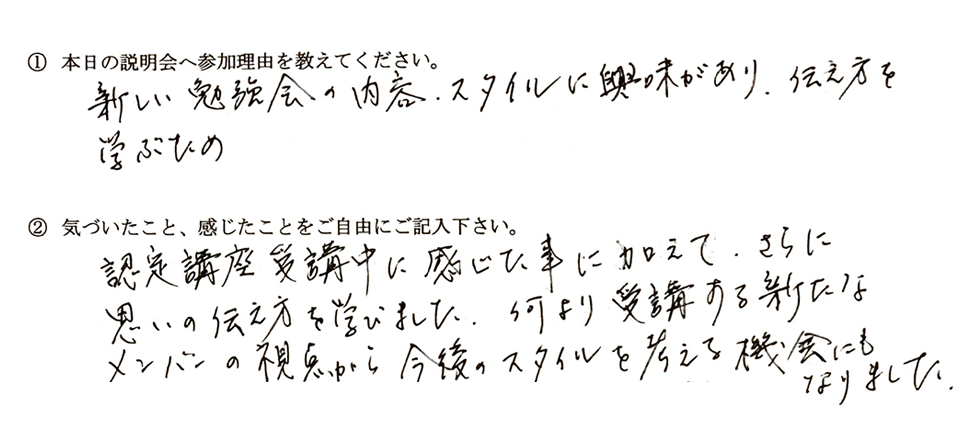 ① 本日の説明会へ参加理由を教えてください。
新しい勉強会の内容、スタイルに興味があり、伝え方を
学ぶため
② 気づいたこと、感じたことをご自由にご記入下さい。
認定講座受講中に感じた事に加えて、さらに
思いの伝え方を学びました。何より受講する新たな
メンバーの視点から今後のスタイルを考える機会にも
なりました。